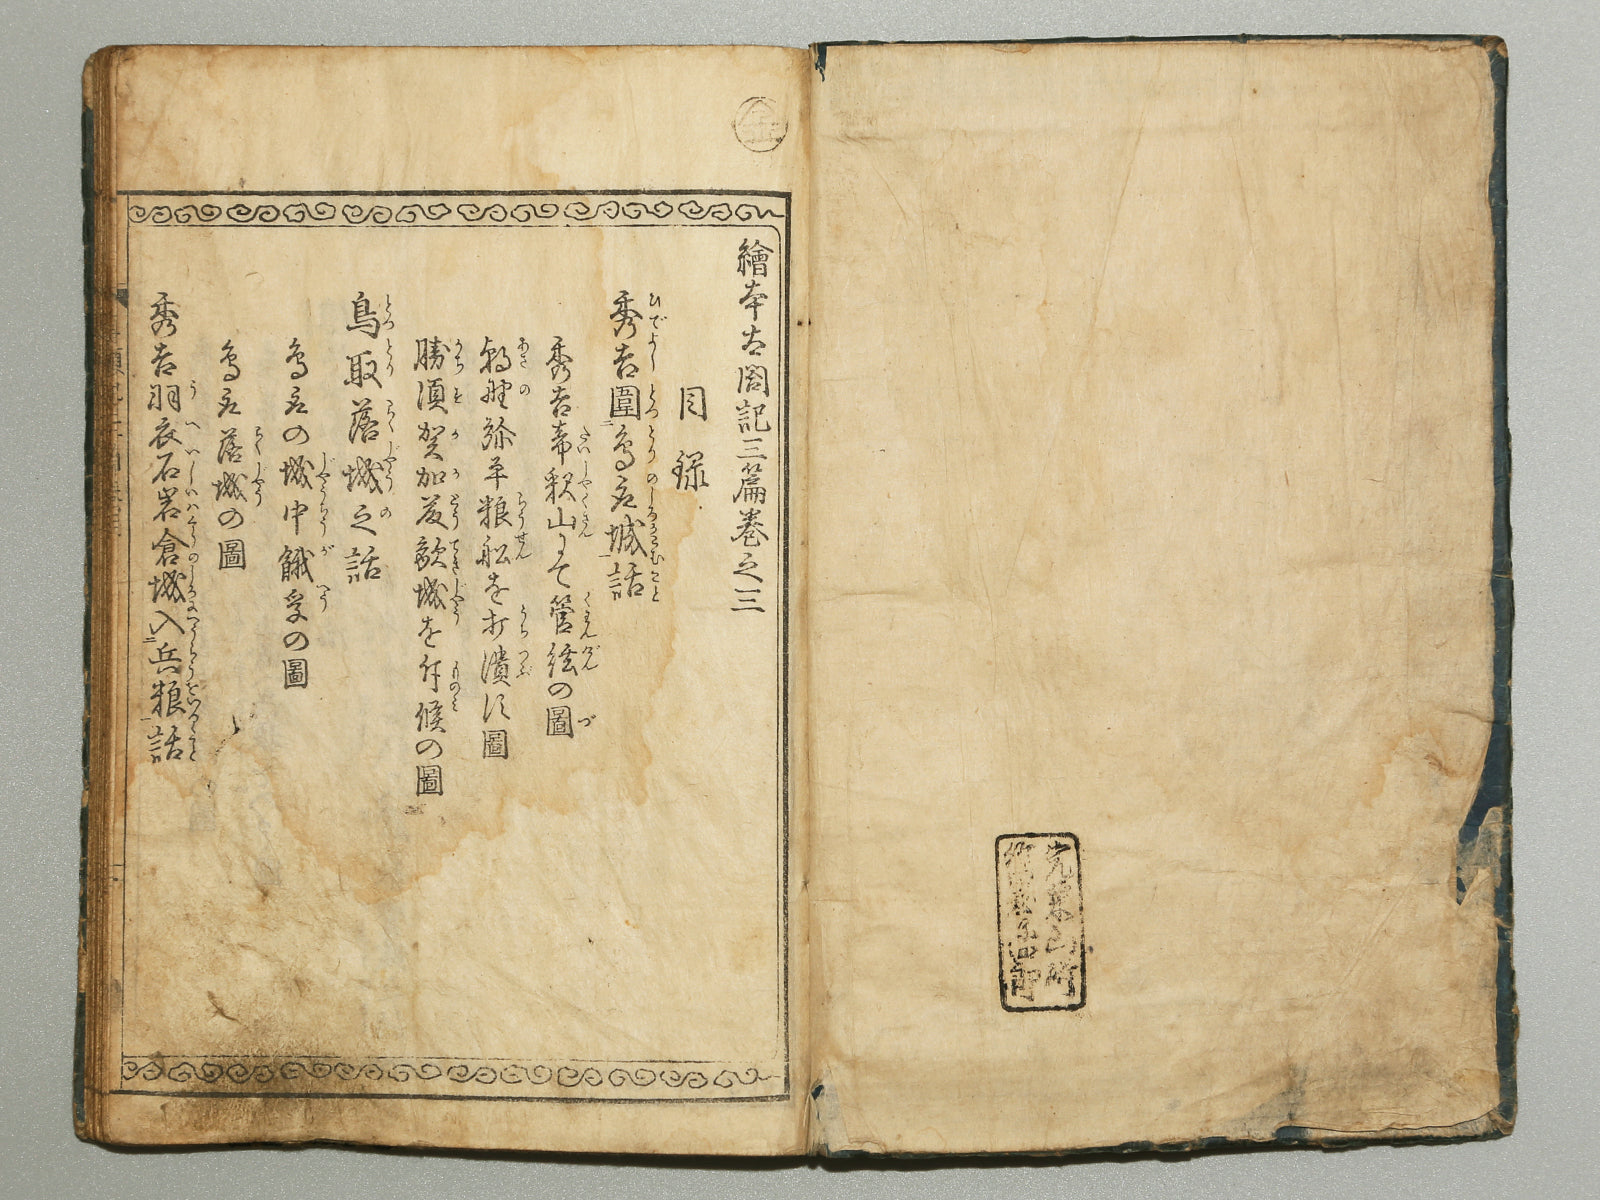 繪本太閤記三篇巻之三
目録
秀吉圍鳥取城話
秀吉帝釈山にて管絃の圖
朝野弥平粮舩を打潰す圖
勝須賀加藤敵城を斥候の圖
鳥取落城之話
鳥取の城中餓孚の圖
鳥取落城の圖
秀吉羽衣石岩倉城入兵粮話